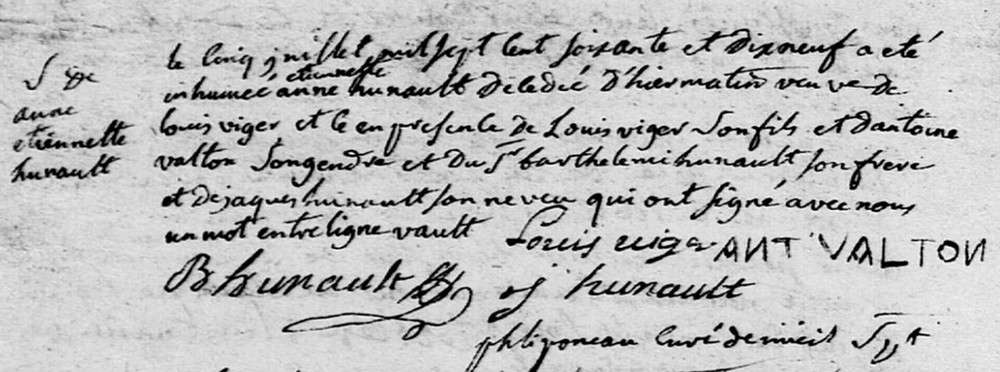 S
anne
etiennette
hunault
le cinq juillet mil sept cent soixante et dixneuf a eté
etiennette
inhumée anne hunault decedeé d'hier matin veuve de
louis viger et ce en presence de Louis viger son fils et d'antoine
valton son gendre et du Sr barthelemi hunault son frere
et de jaques hunault son neveu qui ont signé avec nous
un mot entre ligne vault Louis viger ANT VALTON
B hunault j hunault
phliponeau Curé de